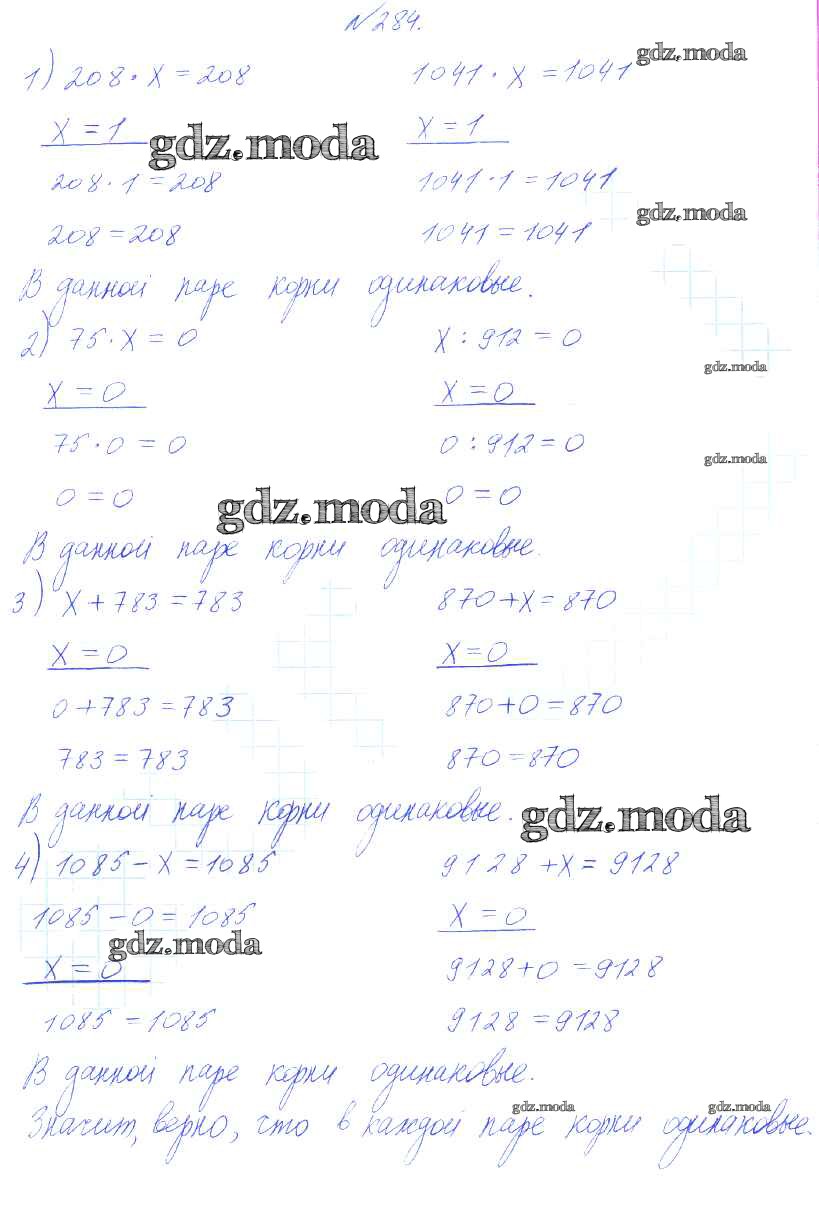 №284.
1) 208 · x = 208    1041 · x = 1041
gdz.moda
x = 1    x = 1
gdz.moda
208 · 1 = 208    1041 · 1 = 1041
gdz.moda
208 = 208    1041 = 1041
В данной паре корни одинаковые.
2) 75 · x = 0    x : 912 = 0
gdz.moda
x = 0    x = 0
75 · 0 = 0    0 : 912 = 0
gdz.moda
0 = 0    0 = 0
gdz.moda
В данной паре корни одинаковые.
3) x + 783 = 783    870 + x = 870
x = 0    x = 0
0 + 783 = 783    870 + 0 = 870
783 = 783    870 = 870
В данной паре корни одинаковые.
gdz.moda
4) 1085 - x = 1085    9128 + x = 9128
1085 - 0 = 1085    x = 0
gdz.moda
x = 0    9128 + 0 = 9128
1085 = 1085    9128 = 9128
В данной паре корни одинаковые.
gdz.moda    gdz.moda
Значит, верно, что в каждой паре корни одинаковые.